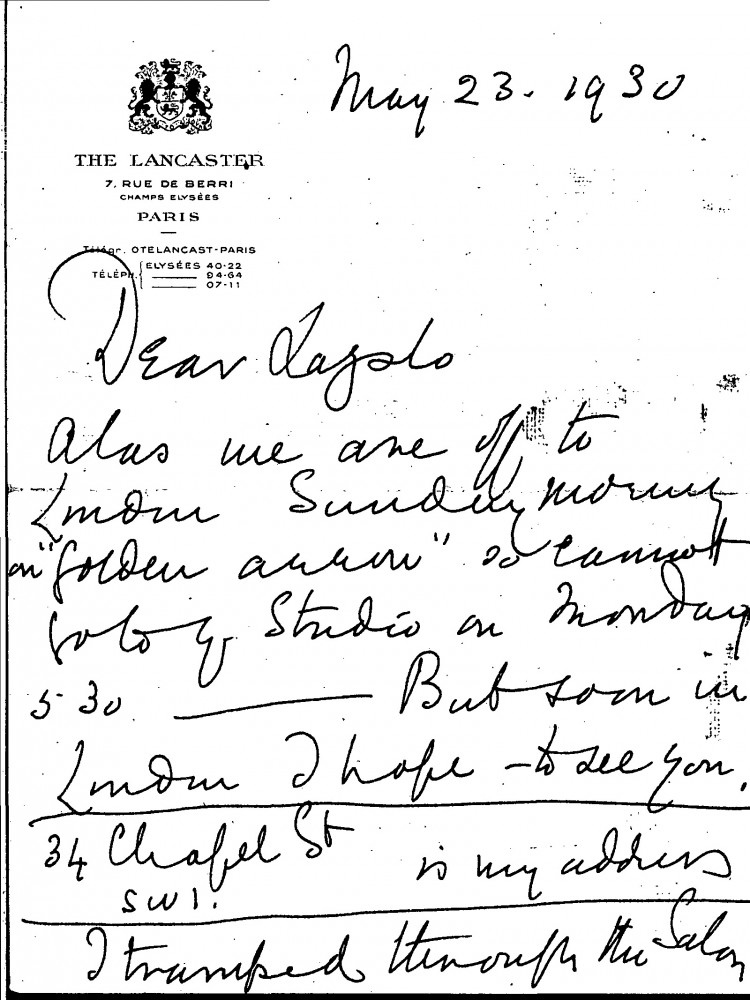 May 23. 1930
THE LANCASTER
7, RUE DE BERRI
CHAMPS ELYSÉES
PARIS
Télégr. OTELANCAST-PARIS
TÉLÉPH. ELYSÉES 40-22
94-64
07-11
Dear Laszlo
Alas we are off to
London Sunday morning
on "Golden arrow" so cannot
go to yr Studio on Monday
5 30 — But soon in
London I hope - to see you.
34 Chapel St is my address
SW1.
I tramped through the Salon